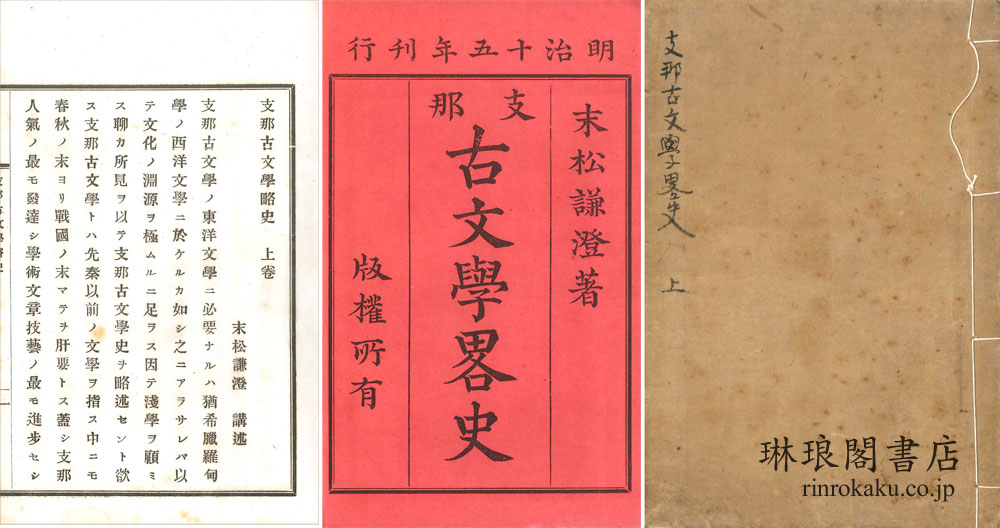 支那古文學略史　上卷
末松謙澄　講述
支那古文學ノ東洋文學ニ必要ナルハ猶希臘羅甸
學ノ西洋文學ニ於ケルカ如シ之ニアラサレバ以
テ文化ノ淵源ヲ極ムルニ足ラス因テ淺學ヲ顧ミ
ス聊カ所見ヲ以テ支那古文學史ヲ略述セント欲
ス支那古文學トハ先秦以前ノ文學ヲ指ス中ニモ
春秋ノ末ヨリ戰國ノ末マテヲ肝要トス蓋シ支那
人氣ノ最モ發達シ學術文章技藝ノ最モ進步セシ
明治十五年刊行
末松謙澄著
支那
古文學畧史
版權所有
支那古文學畧史
上
琳琅閣書店
rinrokaku.co.jp